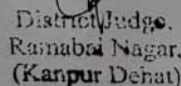 District Judge.
Ramabai Nagar.
(Kanpur Dehat)